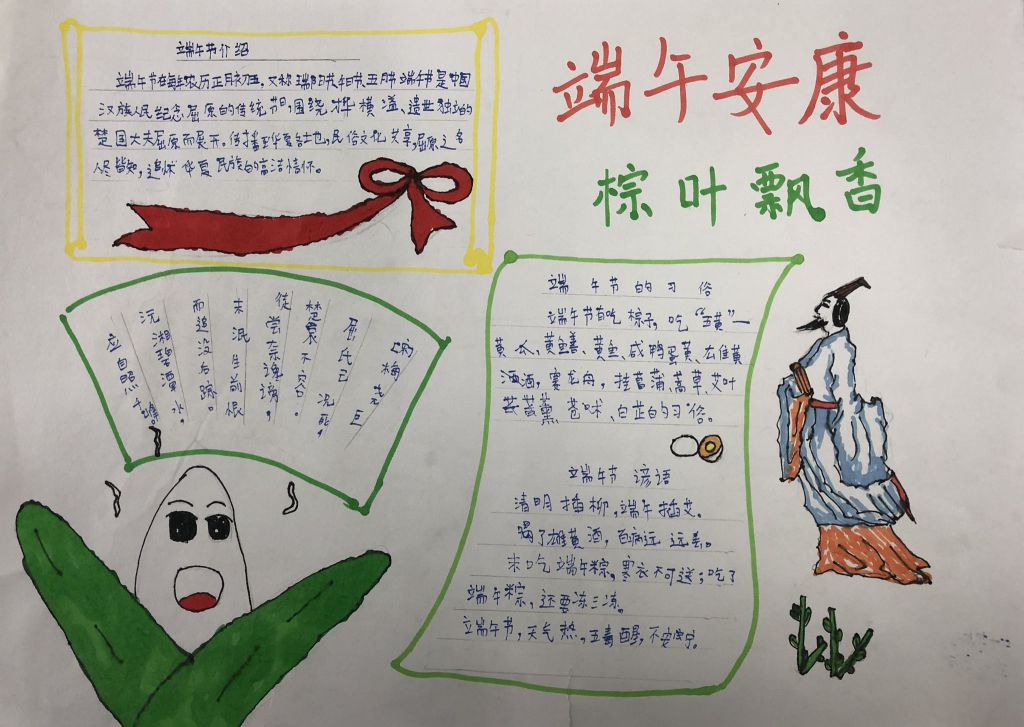 端午安康
棕叶飘香
端午节介绍
端午节在每年农历正月初五,又称端阳节、午日节、五月节。端午节是中国
汉族人民纪念屈原的传统节日,围绕才华横溢、遗世独立的
楚国大夫屈原而展开。传播到华夏各地,民俗文化共享,屈原之名
人尽皆知,追怀华夏民族的高洁情怀。
[宋]梅尧臣
屈氏已沉死,
楚人哀不容。
何尝奈谗谤,
徒
未泯生前恨
而追没后踪。
沅湘碧潭水,
应自照千峰。
端午节的习俗
端午节有吃棕子,吃“五黄”一
黄瓜、黄鳝、黄鱼、咸鸭蛋黄、雄黄
酒酒,赛龙舟,挂菖蒲、蒿草、艾叶
苍术、白芷的习俗。
端午节谚语
清明插柳,端午插艾。
喝了雄黄酒,百病远远丢。
未吃端午粽,寒衣不可送;吃了
端午粽,还要冻三冻。
端午节,天气热,五毒醒,不安宁。